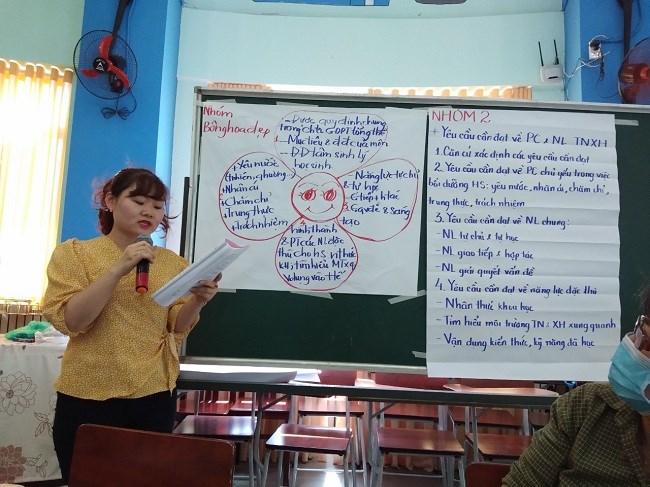 Nhóm
Bông hoa đẹp
- Được quy định chung
trong ctr GDPT tổng thể
- Mục tiêu & đ² của môn
- ĐĐ tâm sinh lý
học sinh
+ Yêu nước
(thiên, qhương...)
+ Nhân ái
+ Chăm chỉ
+ Trung thực
+ Trách nhiệm
Năng lực tự chủ
& tự học
Gtiếp & htác
Gqvđề & sáng
tạo
hình thành
& PT các NL đặc
thù cho HS
KH, tìm hiểu MTxq
Vdụng vào ttế
NHÓM 2
+ Yêu cầu cần đạt về PC & NL TNXH
1. Căn cứ xác định các yêu cầu cần đạt
2. Yêu cầu cần đạt về PC chủ yếu trong việc
bồi dưỡng HS: yêu nước, nhân ái, chăm chỉ,
trung thực, trách nhiệm
3. Yêu cầu cần đạt về NL chung:
- NL tự chủ & tự học
- NL giao tiếp & hợp tác
- NL giải quyết vấn đề
4. Yêu cầu cần đạt về năng lực đặc thù
- Nhận thức khoa học
- Tìm hiểu môi trường TN & XH xung quanh
- Vận dụng kiến thức, kỹ năng đã học